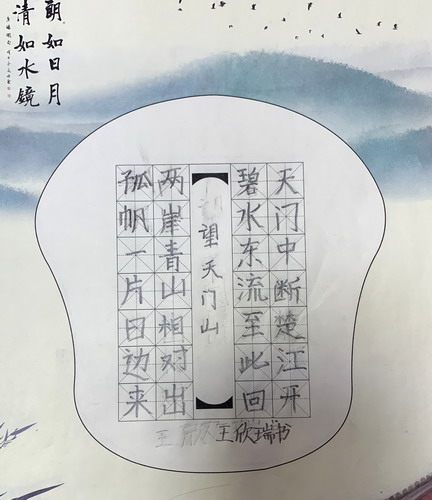 朗如日月
清如水镜
天门中断楚江开
碧水东流至此回
望天门山
两岸青山相对出
孤帆一片日边来
王欣瑞书